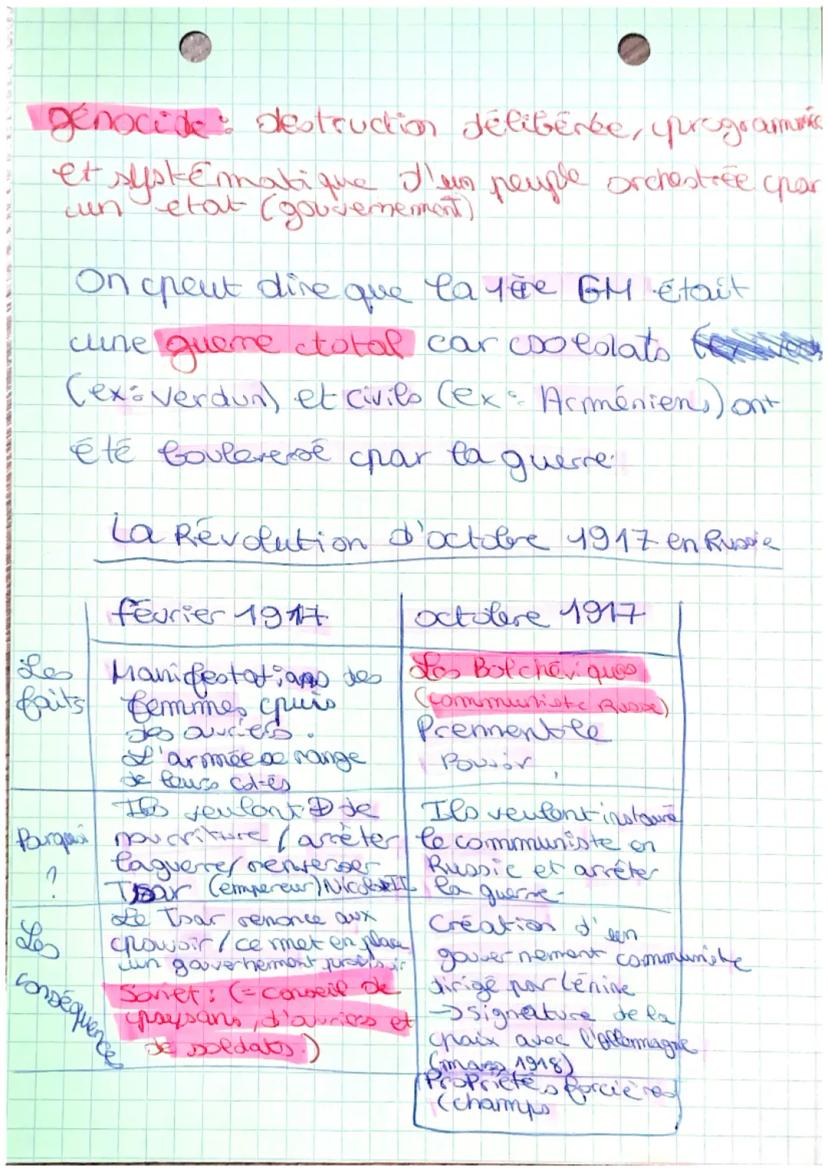 génocide : destruction délibérée, programmée
et systématique d'un peuple orchestrée par
un état (gouvernement)
On peut dire que la 1ère GM était
une guerre total car soldats
(ex: Verdun) et civils (ex: Arméniens) ont
été boulversé par la guerre
La Révolution d'octobre 1917 en Russie
février 1917
octobre 1917
Les
faits
Manifestations des
femmes, puis
des ouvriers.
L'armée se range
de leurs cotés
Les Bolchéviques
(communiste Russe)
Prennent le
Pouvoir,
Pourquoi
?
Ils veulent + de
nourriture / arrêter
la guerre / renverser
Tsar (empereur) Nicolas II
Ils veulent instauré
le communiste en
Russie et arrêter
la guerre.
Les
conséquences
Le Tsar renonce aux
pouvoir / ce met en place
un gouvernement provisoir
Soviet : (= conseil de
paysans, d'ouvriers et
de soldats.)
Création d'un
gouvernement communiste
dirigé par Lénine
→ signature de la
paix avec l'Allemagne
(mars 1918)
Propriétés foncières
(champs